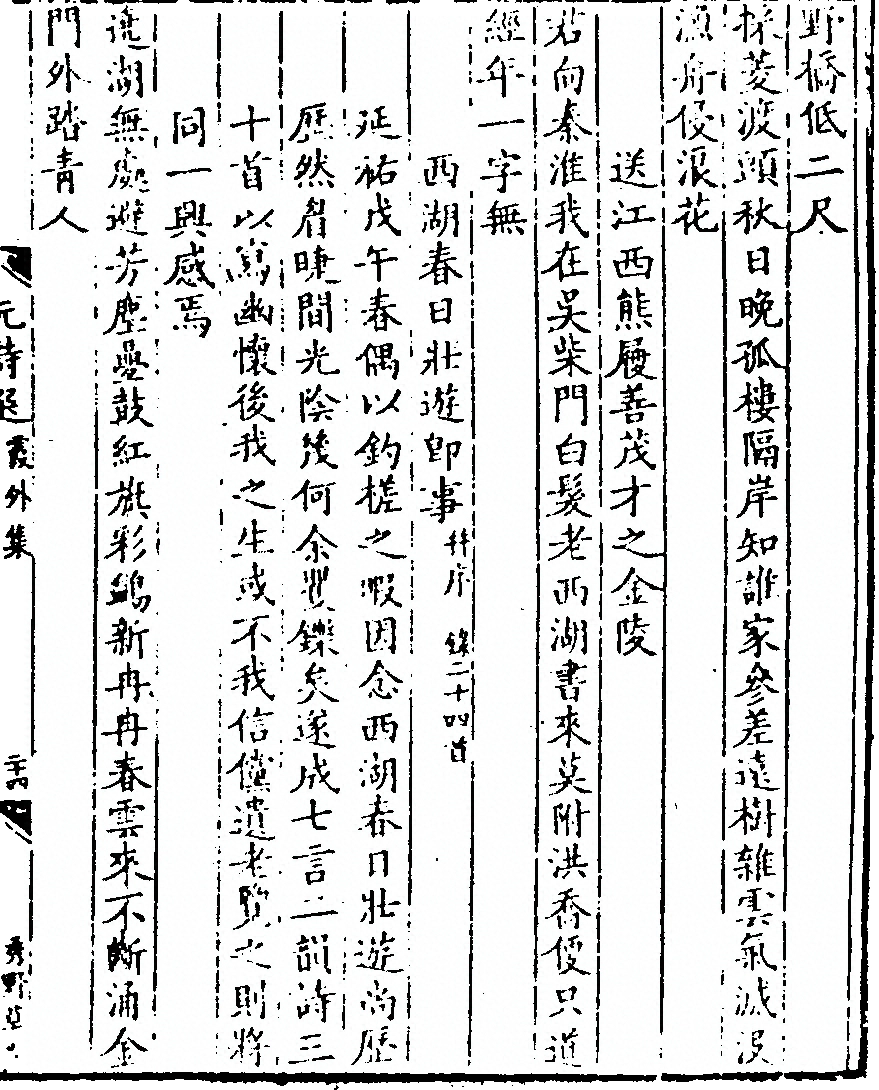 野橋低二尺
採菱渡頭秋日晚孤樓隔岸知誰家參差遠樹雜雲氣滅沒
漁舟侵浪花
送江西熊履善茂才之金陵
君向秦淮我在吳柴門白髮老西湖書來莫附洪喬便只道
經年一字無
西湖春日壯遊即事并序 錄二十四首
延祐戊午春偶以釣槎之暇因念西湖春日壯遊尚歷
歷然眉睫間光陰幾何余豐鑠矣遂成七言二韻詩三
十首以寫幽懷後我之生或不我信儻遺老覽之則將
同一興感焉
遶湖無處避芳塵疊鼓紅旗彩鷁新冉冉春雲來不斷涌金
門外踏青人
元詩選 霞外集 二十四 秀野草